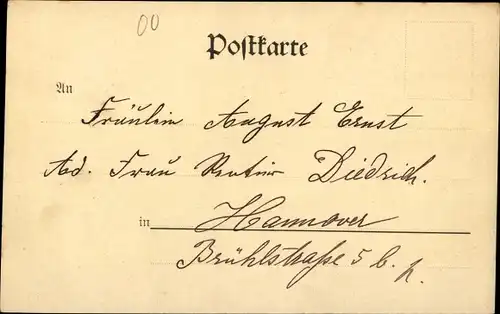 00
Postkarte
An
Fräulein August Ernst
Ad. Frau Rentier Diedrich.
in Hannover
Brühlstraße 5 b. p.